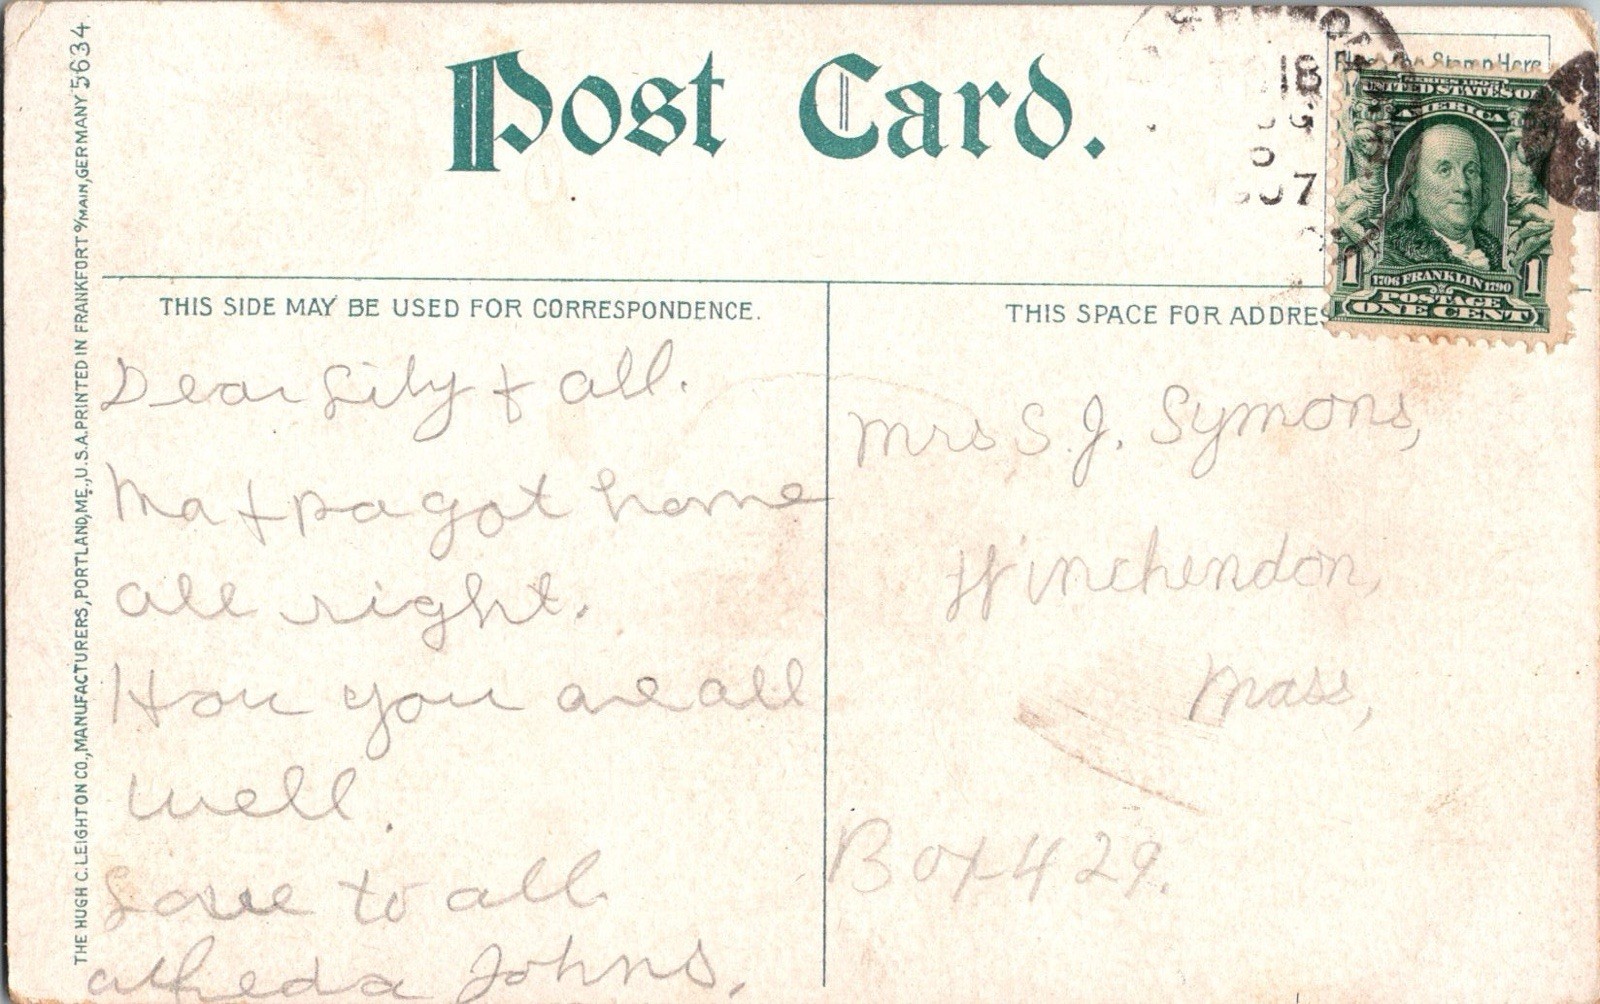 Post Card.
18
07
Stamp Here
UNITED STATES OF
AMERICA
1706 FRANKLIN 1790
1 1
POSTAGE
ONE CENT
THE HUGH C. LEIGHTON CO., MANUFACTURERS, PORTLAND, ME., U.S.A. PRINTED IN FRANKFORT o/MAIN, GERMANY 5634
THIS SIDE MAY BE USED FOR CORRESPONDENCE.
Dear Lily + all.
Ma + pa got home
all right.
How you are all
well.
Love to all
Johns.
THIS SPACE FOR ADDRES
Mrs S. J. Symons,
Winchendon,
Mass,
Box 429.